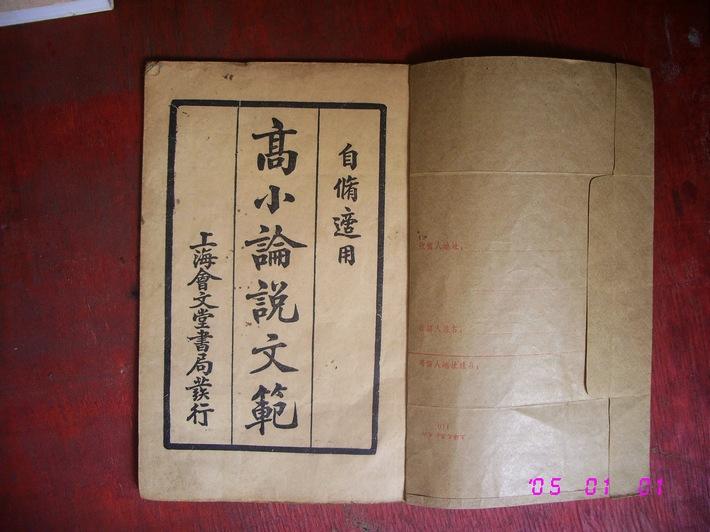 自脩適用
髙小論説文範
上海會文堂書局發行
收信人地址：
收信人姓名：
寄信人地址姓名：
'05 01 01